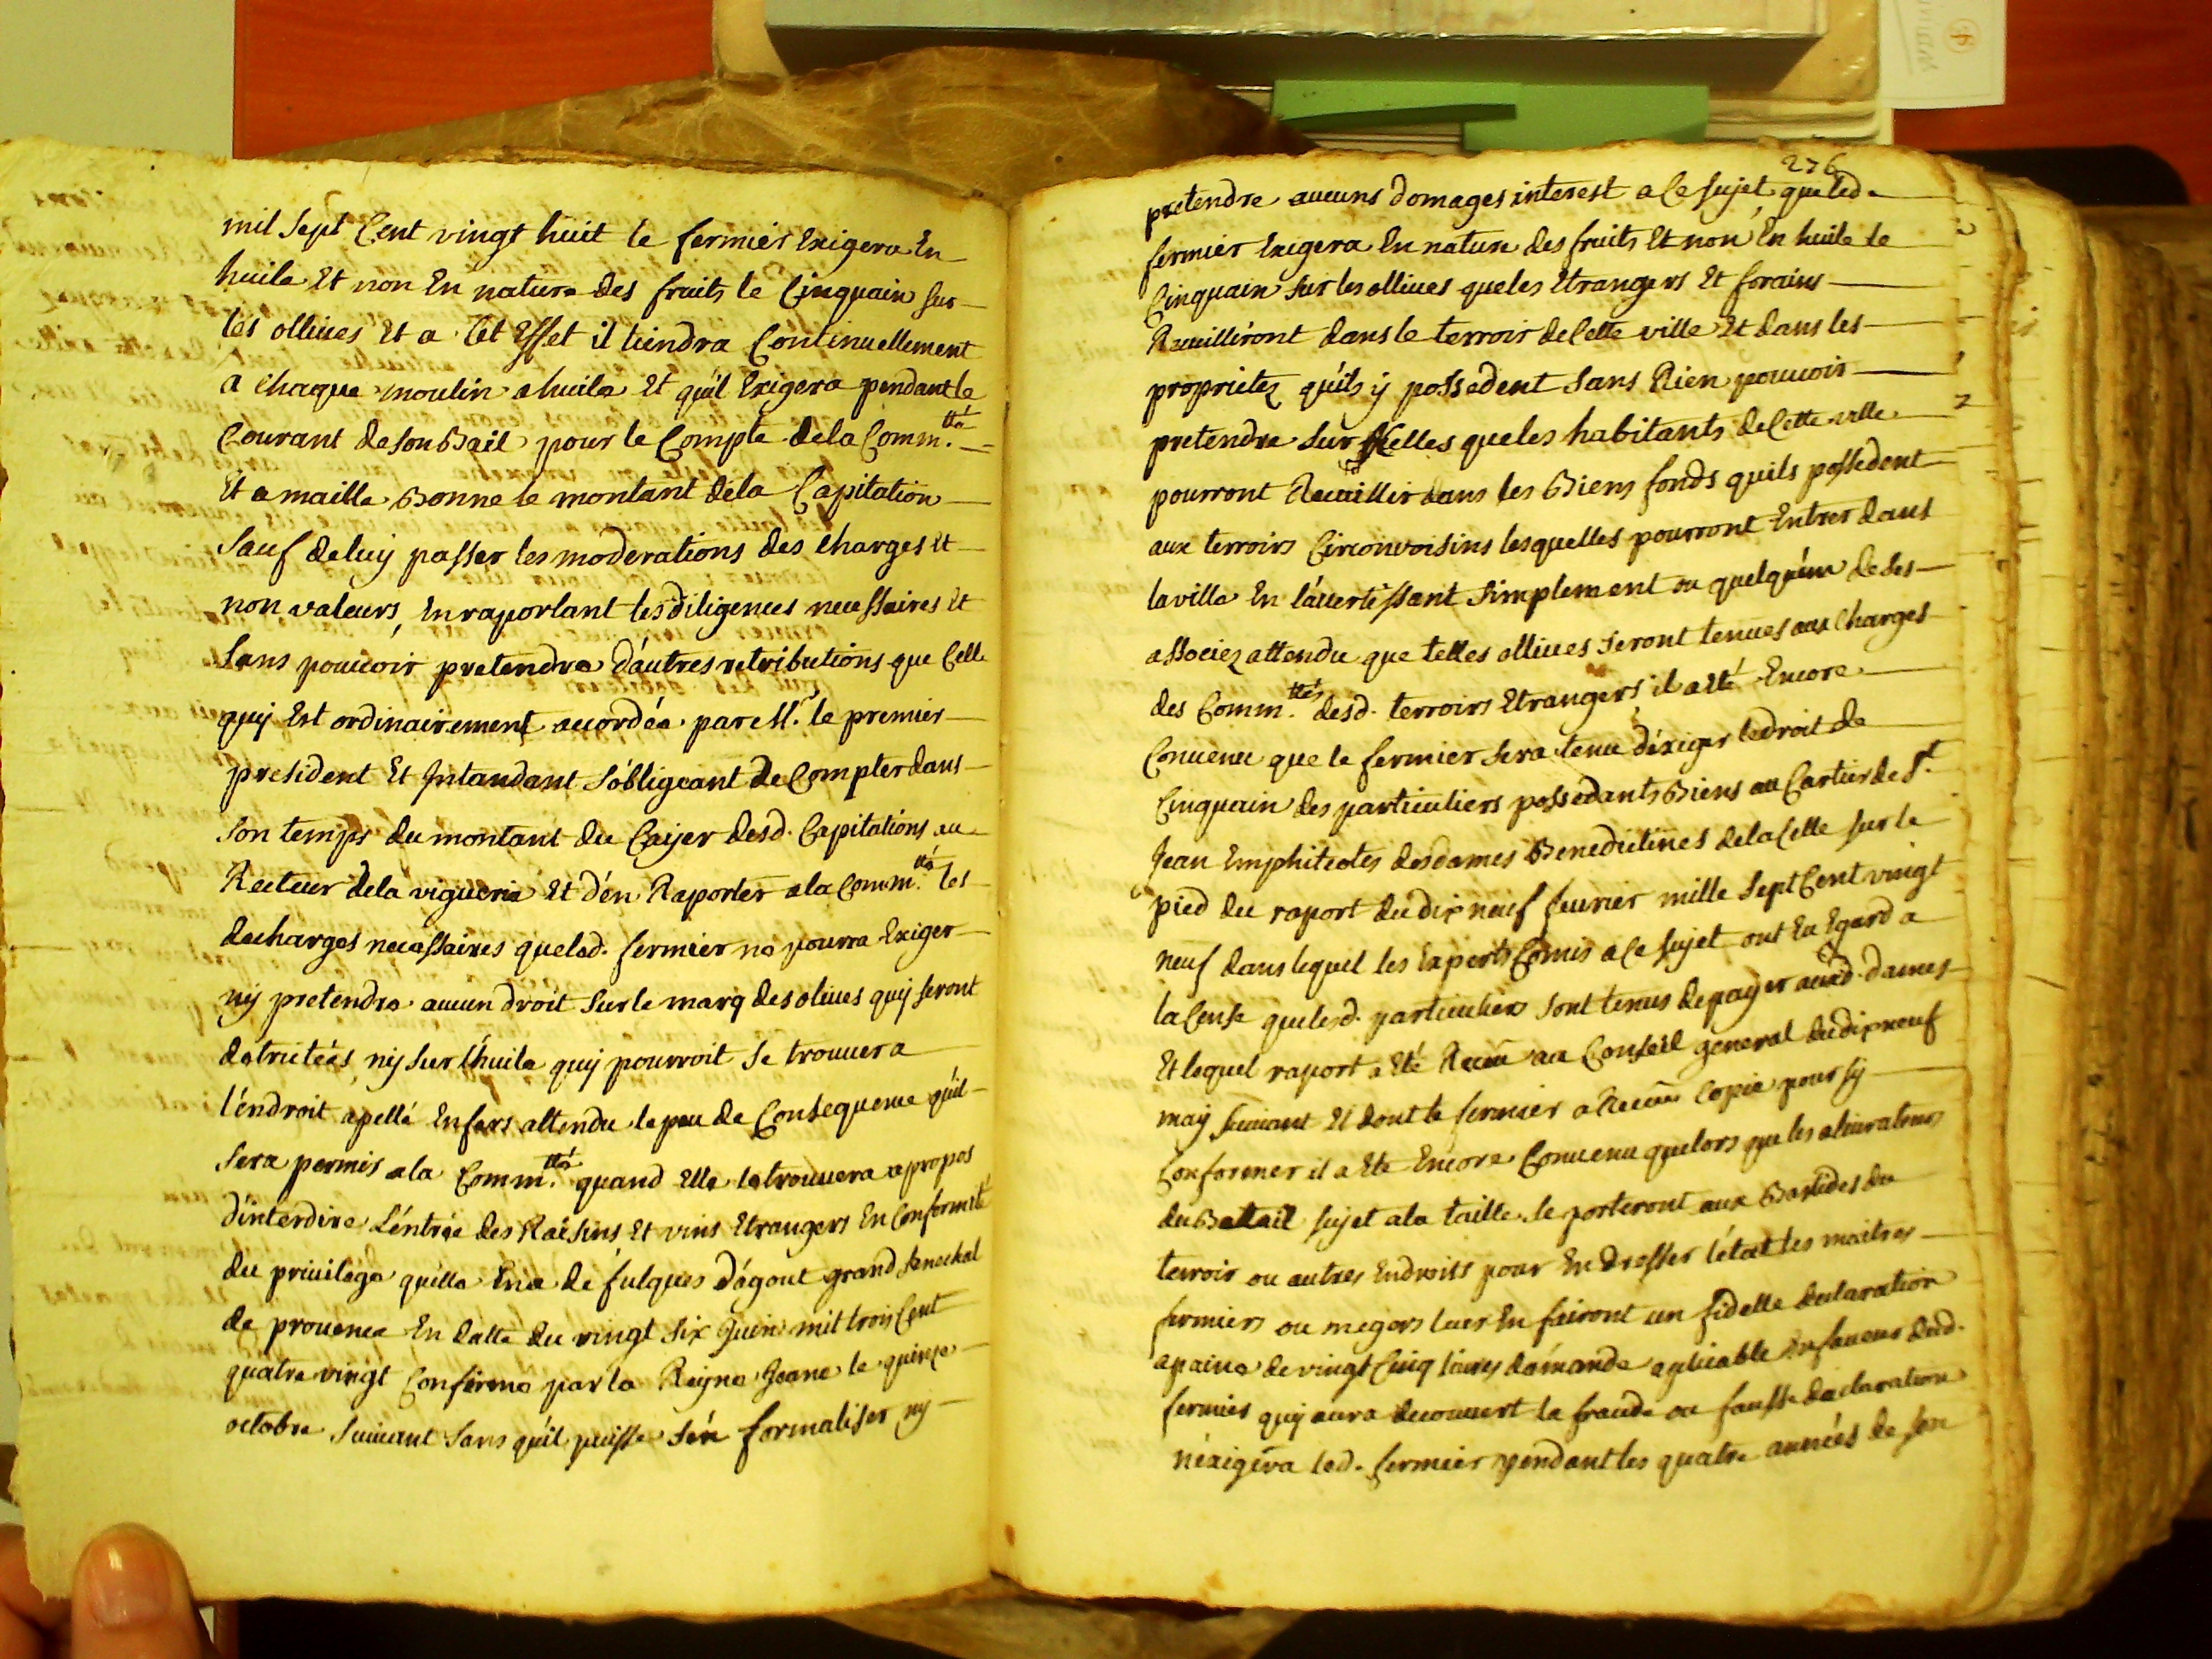 mil sept Cent vingt huit le fermier Exigera En
huile Et non En nature des fruits le Cinquain sur
les ollives Et a Cet Effet il tiendra Continuellement
a chaque moulin a huile Et qu'il Exigera pendant le
Courant de son Bail pour le Compte dela Comm.tté
Et a maille Bonne le montant dela Capitation
sauf deluy passer les moderations des charges Et
non valeurs, En raportant les diligences necessaires Et
sans pouvoir pretendre d'autres retributions que Celle
quy Est ordinairement accordée par M.r le premier
president Et Intandant s'obligeant de Compter dans
son temps du montant du Cayer desd. Capitations au
Recteur dela viguerie Et d'en Raporter ala Comm.tté les
decharges necessaires queled. fermier ne pourra Exiger
ny pretendre aucun droit sur le marq des olives quy seront
detrictées, ny sur l'huile quy pourroit se trouver a
l'endroit apellé Enfers attendu le peu de Consequence qu'il
sera permis ala Comm.tté quand Elle le trouvera a propos
d'interdire L'entrée des Raisins Et vins Etrangers En Conformité
du privilege quelle En a de fulques d'agout grand senechal
de provence En datte du vingt six Juin mil trois Cent
quatre vingt Confirmé par la Reyne Jeane le quinze
octobre suivant sans qu'il puisse s'en formaliser ny
276
pretendre aucuns domages interest a Ce sujet que led.
fermier Exigera En nature des fruits Et non En huile le
Cinquain sur les ollives que les Etrangers Et forains
Recuilliront dans le terroir de Cette ville Et dans les
proprietez qu'ils y possedent sans Rien pouvoir
pretendre sur Celles que les habitants de Cette ville
pourront Recuillir dans les Biens fonds quils possedent
aux terroirs Circonvoisins lesquelles pourront Entrer dans
la ville En l'avertissant simplement ou quelqu'un de ses
associez attendu que telles ollives seront tenues aux Charges
des Comm.ttés desd. terroirs Etrangers, il a Eté Encore
Convenu que le fermier sera tenu d'exiger le droit de
Cinquain des particuliers possedants Biens au Cartier de S.t
Jean Emphiteotes des dames Benedictines dela Celle sur le
pied du raport du dix neuf fevrier mille sept Cent vingt
neuf dans lequel les Experts Comis a Ce sujet ont Eu Egard a
la Cense que lesd. particuliers sont tenus de payer auxd. dames
Et lequel raport a Eté Receu au Conseil general du dix neuf
may suivant Et dont le fermier a Receu Copie pour sy
Conformer il a Eté Encore Convenu que lors que les alivrateurs
du Bettail sujet ala taille se porteront aux Bastides du
terroir ou autres Endroits pour En dresser l'état les maitres
fermiers ou megers leur En fairont un fidelle declaration
a paine de vingt Cinq livres d'amande aplicable En faveur dud.
fermier quy aura decouvert la fraude ou fausse declaration
n'exigera led. fermier pendant les quatre années de son